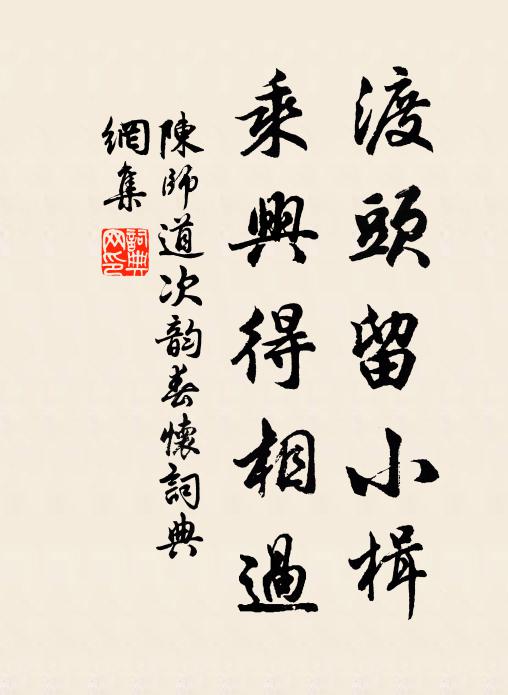 渡頭留小楫
乘興得相過
陳師道次韵春懷詞典
網集
詞典網印